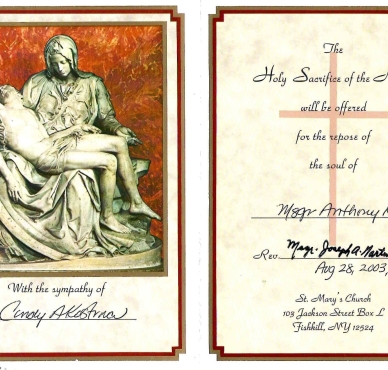 With the sympathy of
Cindy
The
Holy Sacrifice of the
will be offered
for the repose of
the soul of
Msgr Anthony
Rev. Msgr. Joseph A.
Aug 28, 2003,
St. Mary's Church
103 Jackson Street Box L
Fishkill, NY 12524